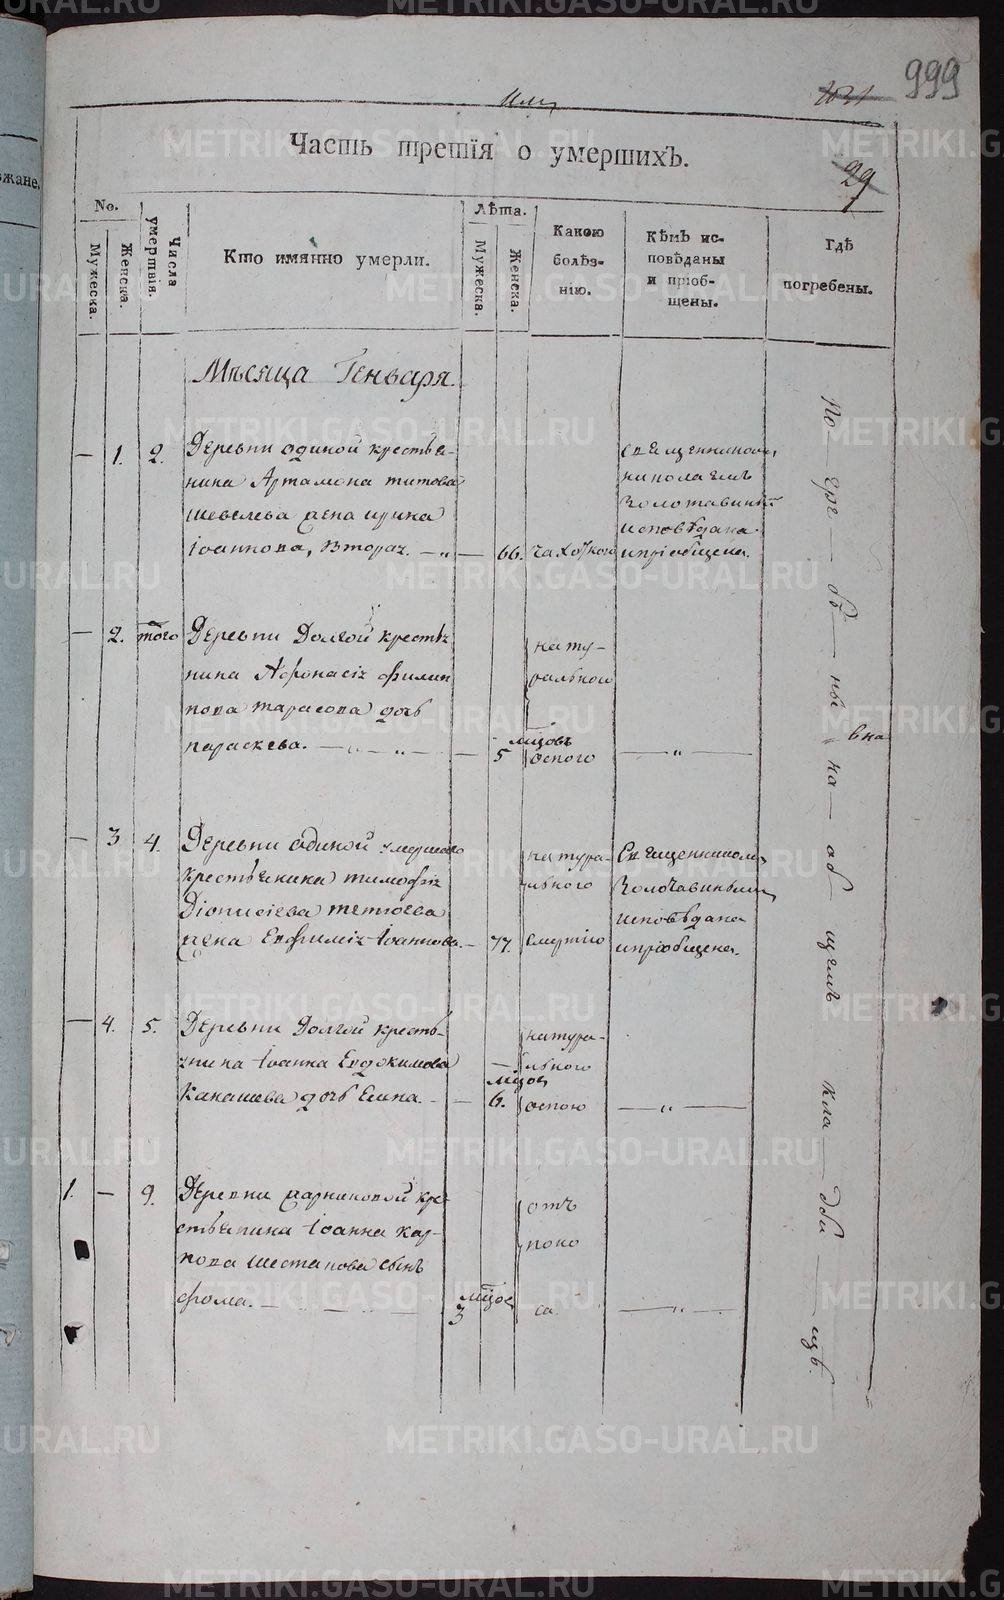 999
1031
29
Часть третія о умершихъ.
No.
Мужеска.
Женска.
Числа умертвія.
Кто имянно умерли.
Лѣта.
Мужеска.
Женска.
Какою болѣз-
нію.
Кѣмъ ис-
повѣданы
и пріоб-
щены.
Гдѣ
погребены.
Мѣсяца Генваря
— 1. 2. Деревни одиной крестья-
нина Артамона титова
шевелева жена ирина
Іоаннова, втораг. — „ — 66. чахоткою
Священникомъ
николаемъ
Золотавинымъ
исповѣдана
и пріобщена.
— 2. того Деревни Долгой крестья
нина Афонасія филип
пова тарасова дочь
параскева. — „ — „ — мцовъ 5
нату-
ральною
оспою — „ —
— 3 4. Деревни одиной умершаго
крестьянина тимофѣя
Діонисіева тетюева
жена Евфимія Іоаннова. — 77.
натура-
льною
смертію
Священникомъ
Золотавинымъ
исповѣдана
и пріобщена.
— 4. 5. Деревни Долгой кресть-
янина Іоанна Евдокимова
Канашева дочь Елена. — мцов 6.
натура-
льною
оспою — „ —
1. — 9. Деревни парниковой кре-
стьянина Іоанна кар-
пова шестакова сынъ
фома. — мцов 3
отъ
поно
са. — „ —
По ерг об ны на об щемъ кла дби щѣ.
вна